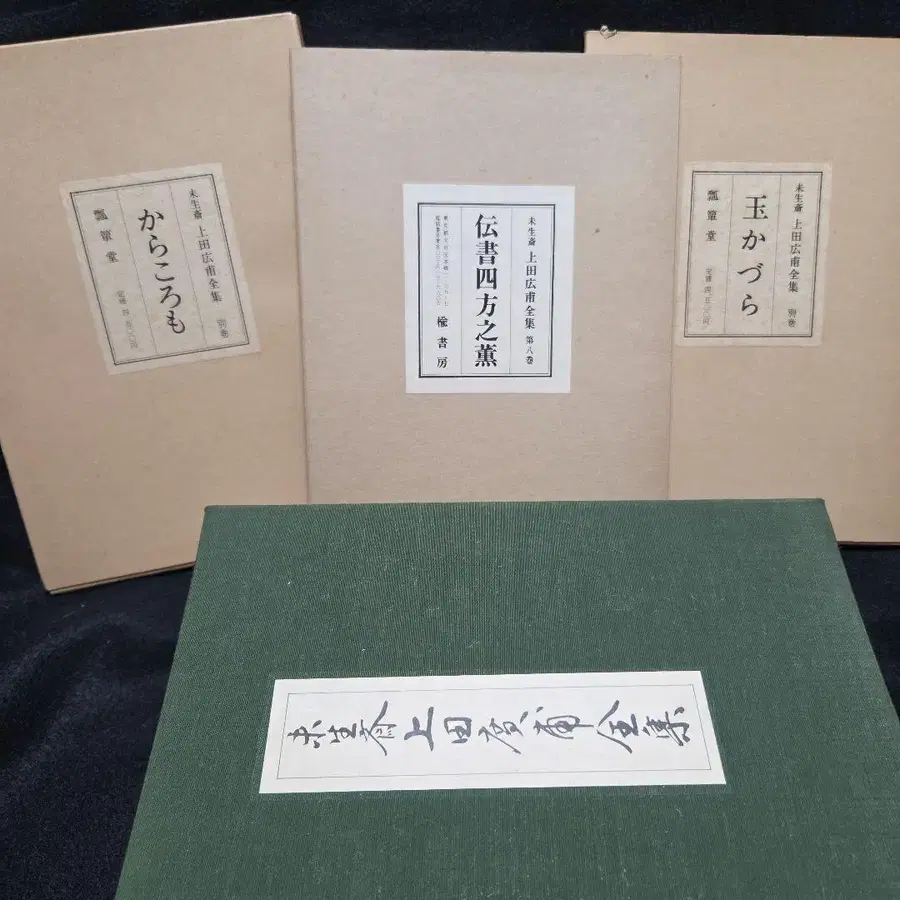 未生斎 上田広甫全集 別巻
からころも
瓢箪堂
未生斎 上田広甫全集 第八巻
伝書四方之薫
楡書房
未生斎 上田広甫全集 別巻
玉かづら
瓢箪堂
未生斎上田廣甫全集